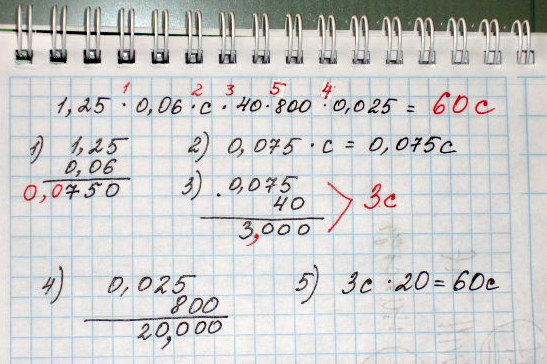 1 2 3 5 4
1,25 · 0,06 · c · 40 · 800 · 0,025 = 60c
1) 1,25
0,06
0,0750
2) 0,075 · c = 0,075c
3) · 0,075
40
3,000
3c
4) 0,025
800
20,000
5) 3c · 20 = 60c